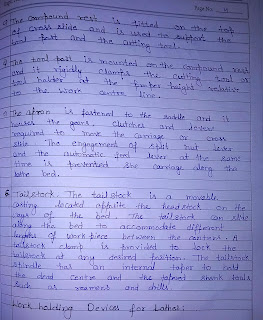 Page No.
c) The compound rest is fitted on the top
of cross slide and is used to support the
tool post and the cutting tool.
The tool post is mounted on the compound rest
and it rigidly clamps the cutting tool or
tool holder at the proper height relative
to the work centre line.
The apron is fastened to the saddle and it
houses the gears, clutches and levers
required to move the carriage or cross
slide. The engagement of split nut lever
and the automatic feed lever at the same
time is prevented she carriage along the
lathe bed.
Tailstock: The tail stock is a movable
casting located opposite the headstock on the
ways of the bed. The tailstock can slide
along the bed to accommodate different
lengths of work piece between the centers. A
tailstock clamp is provided to lock the
tailstock at any desired position. The tailstock
spindle has an internal taper to hold
the dead centre and the tapered shank tools
such as reamers and drills.
Work holding Devices for Lathes: